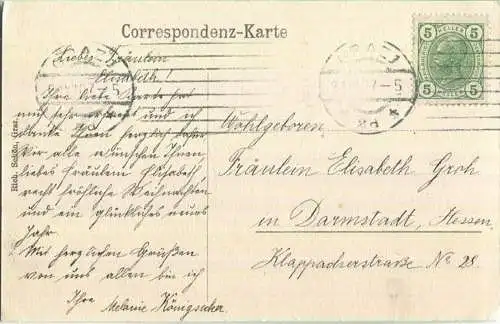 Correspondenz-Karte
5 HELLER 5
5 5
GRAZ 1
Liebes Fräulein
Elisabeth!
Ihre liebe Karte hat
mich sehr erfreut und ich
danke Ihnen herzlich dafür
Wir alle wünschen Ihnen,
liebes Fräulein Elisabeth
recht fröhliche Weihnachten
und ein glückliches neues
Jahr
Mit herzlichen Grüßen
von uns allen bin ich
Ihre Melanie Königsecker
Wohlgeboren
Fräulein Elisabeth
in Darmstadt, Hessen.
Klappacherstraße No 28.
Graz.